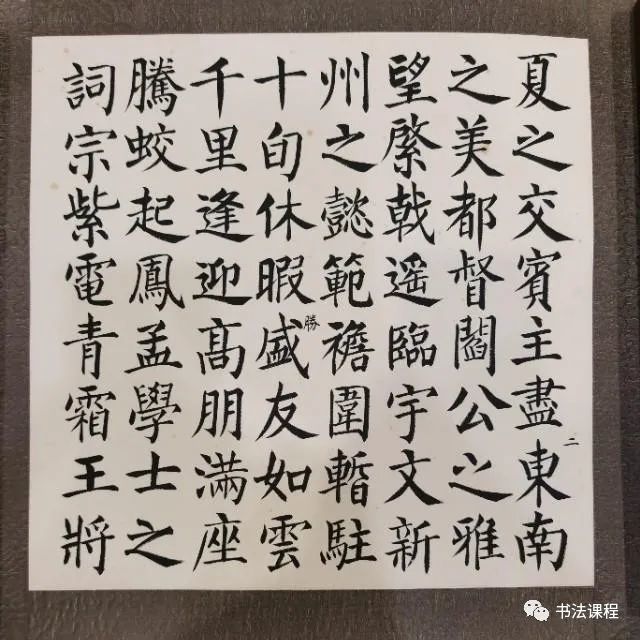 夏之交賓主盡東南
之美都督閻公之雅
望棨戟遥臨宇文新
州之懿範襜圍暫駐
十旬休暇盛友如雲
千里逢迎高朋滿座
騰蛟起鳳孟學士之
詞宗紫電青霜王將
二
勝
书法课程